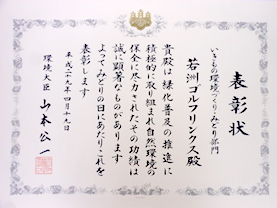 表彰状
いきもの環境づくり・みどり部門
若洲ゴルフリンクス殿
貴殿は緑化普及の推進に
積極的に取り組まれ自然環境の
保全に尽力されたその功績は
誠に顕著なものがあります
よってみどりの日にあたりこれを
表彰します
平成二十九年四月十九日
環境大臣 山本公一